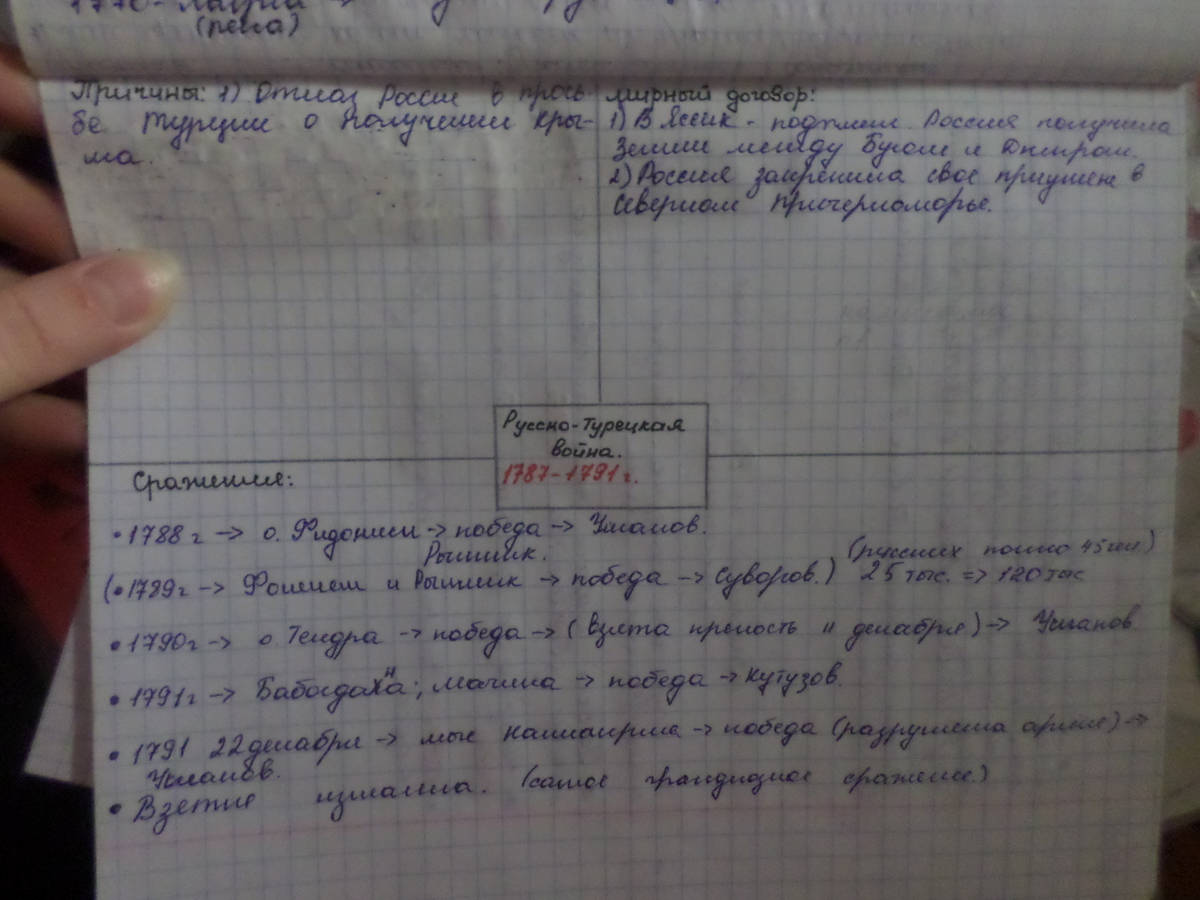 1770-
(река)
Причины: 1) Отказ России в прось-
бе Турции о получении Кры-
ма.
мирный договор:
1) В Яссик - поджтеп. Россия получила
Земли между Бугом и Днепром.
2) Россия закрепила свое в
Северном Причерноморье.
Русско-Турецкая
война.
1787-1791г.
Сражение:
• 1788 г → о. Фидониси → победа → Ушаков.
Рымник.
(русских погибло 45чел.)
(• 1789г → и Рымник → победа → Суворов.) 25 тыс. => 120 тыс
• 1790г → о. Тендра → победа → (Взята крепость 11 декабря) → Ушаков.
• 1791г → ; Мачина → победа → Кутузов.
• 1791 22 декабря → мыс → победа (разрушена армия) →
Ушаков.
• Взятие измаила. (самое грандиозное сражение)